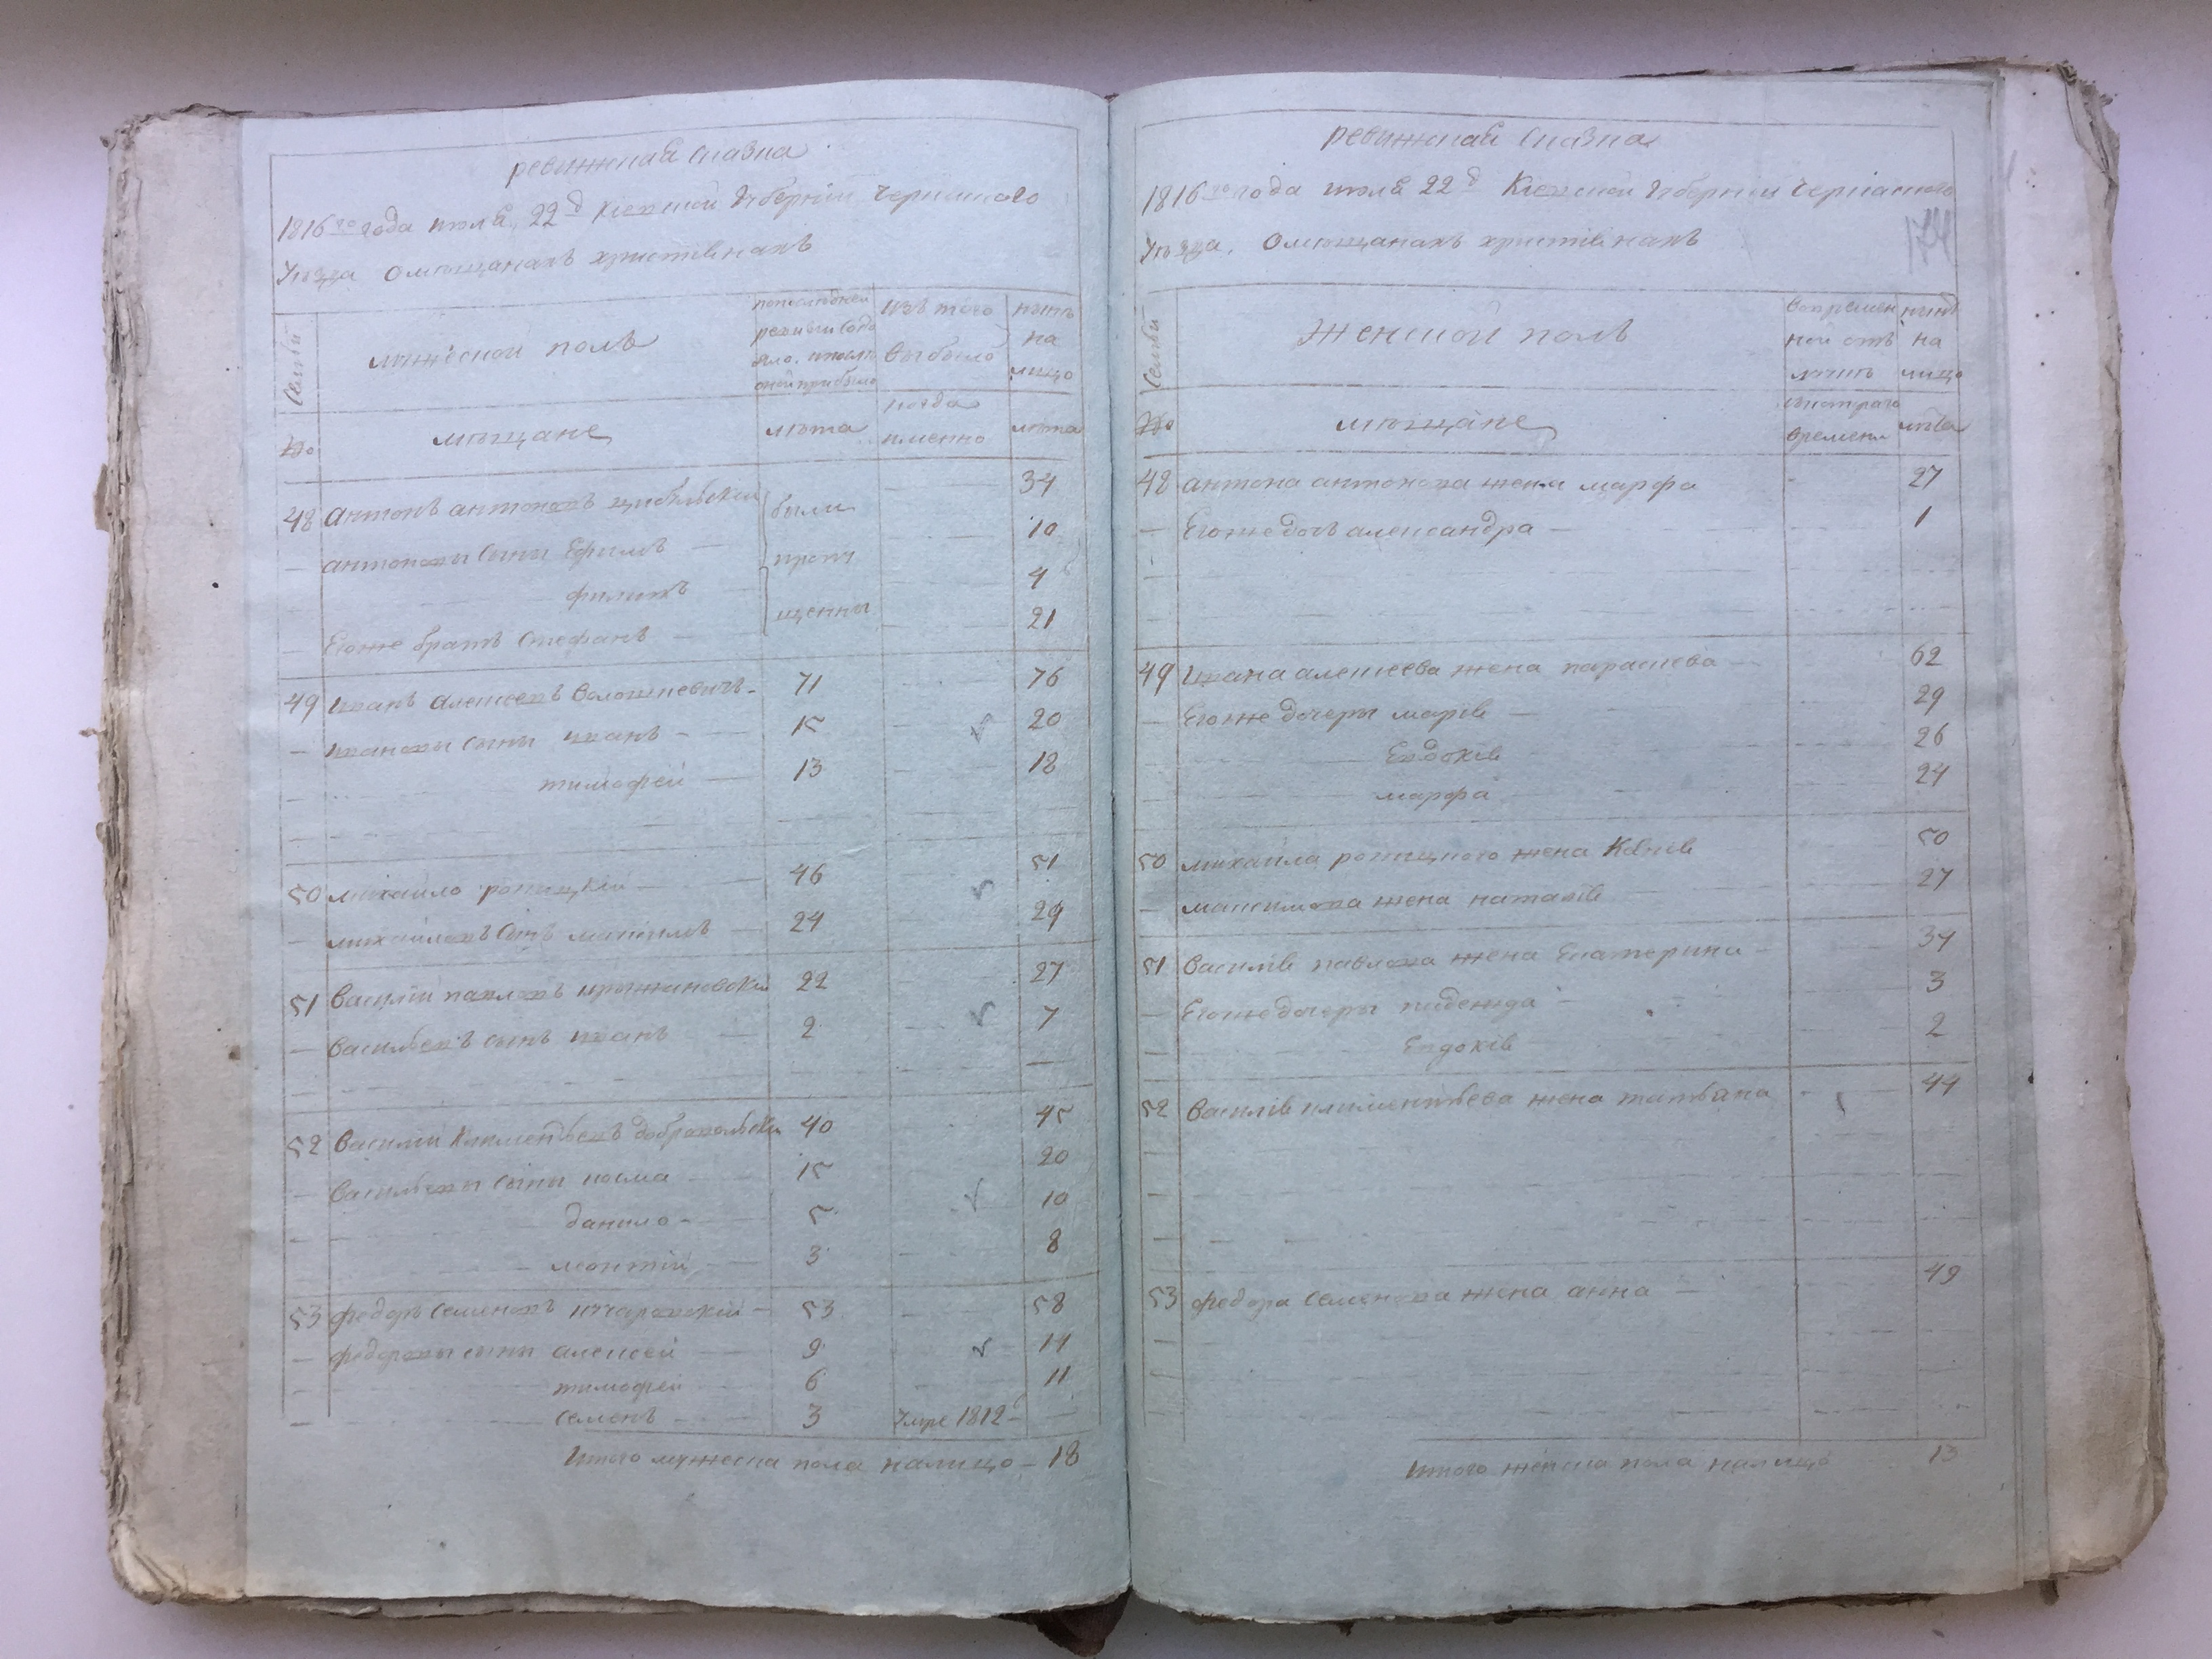 ревижская сказка
1816 го года июля 22 д Киевской Губернии Черкаского
Уезда О мещанахъ христiянахъ
Семьи
мужеской полъ
по последней ревизии состояло и после оной прибыло
Изъ того выбыло
ныне на лицо
№
мещане
лета
когда именно
лета
48 Антонъ антоновъ были 34
антоновы сыны Ефимъ пропу 10
филипъ 4
Егоже братъ Стефанъ щенны 21
49 Иванъ алексеевъ Волошкевичъ 71 76
ивановы сыны иванъ 15 20
тимофей 13 18
50 михайло ропицкiй 46 51
михайловъ сынъ максимъ 24 29
51 Василiй павловъ кржижановскiй 22 27
Васильевъ сынъ иванъ 2 7
52 Василiй Климентьевъ добровольскiй 40 45
Васильевы сыны косма 15 20
данило 5 10
леонтiй 3 8
53 федоръ семеновъ 53 58
федоровы сыны алексей 9 14
тимофей 6 11
семенъ 3 умре 1812
Итого мужеска пола налицо 18
ревижская сказка
1816 го года июля 22 д Киевской Губернии Черкаского
Уезда. О мещанахъ христiянахъ
174
Семьи
Женской полъ
во временной отлучке
ныне на лицо
№
мещане
съ котораго времени
лета
48 антона антонова жена марфа 27
Егоже дочь александра 1
49 Ивана алексеева жена параскева 62
Егоже дочеры марiя 29
Евдокiя 26
марфа 24
50 михаила ропицкого жена Ксенiя 50
максимова жена наталiя 27
51 Василiя павлова жена Екатерина 34
Егоже дочеры надежда 3
Евдокiя 2
52 Василiя климентьева жена татьяна 44
53 федора Семенова жена анна 49
Итого женска пола налицо 13